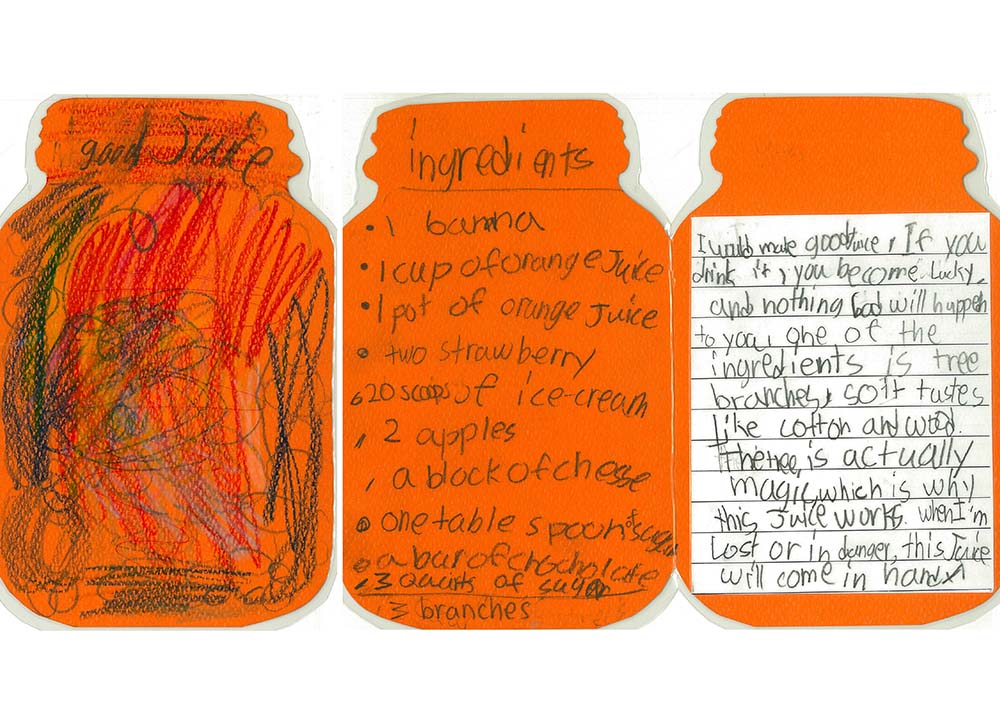 good Juice
ingredients
• 1 banna
• 1 cup of orange Juice
• 1 pot of orange Juice
• two strawberry
• 20 scoops of ice-cream
, 2 apples
, a block of chesse
• one table spoon of sugar
• a bar of chocholate
• 3 Quarts of sugar
3 branches
I would make good Juice, If you
drink it, you become Lucky,
and nothing bad will happen
to you, one of the
ingredients is tree
branches, so it tastes
Like cotton and wood.
The tree, is actually
magic, which is why
this Juice works. when I'm
Lost or in danger, this Juice
will come in handy